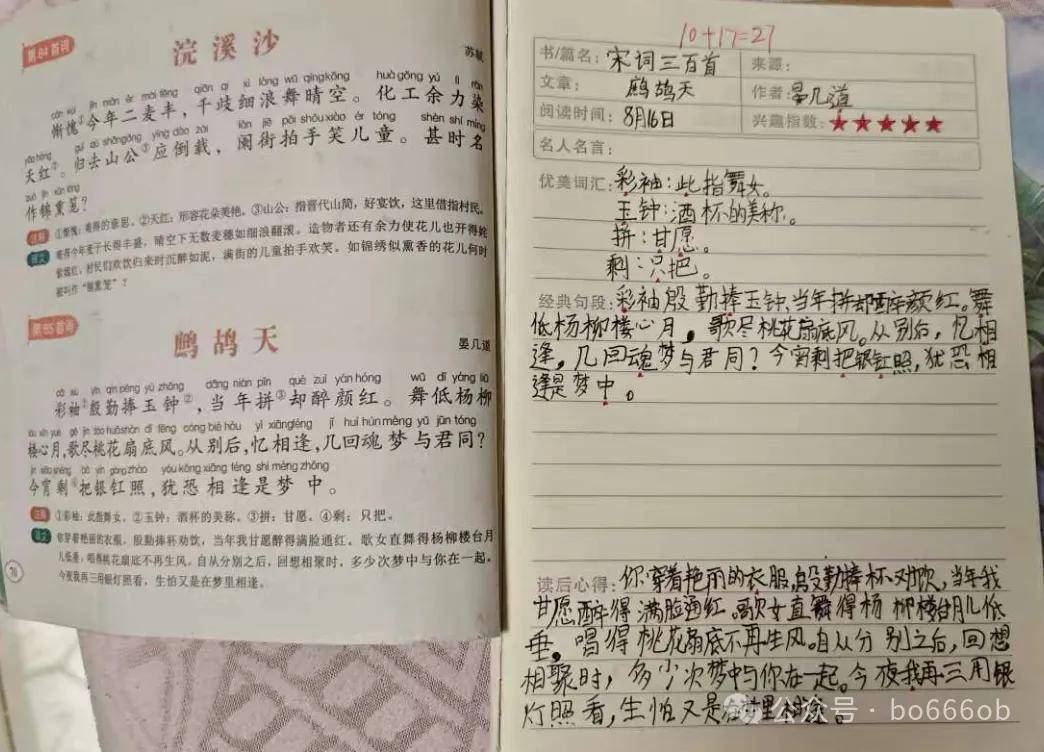 第84首词
浣溪沙
苏轼
惭愧①今年二麦丰，千歧细浪舞晴空。化工余力染
夭红②。归去山公③应倒载，阑街拍手笑儿童。甚时名
作锦熏笼？
注释 ①惭愧：难得的意思。②夭红：形容花朵美艳。③山公：指晋代山简，好宴饮，这里借指村民。
译文 难得今年麦子长得丰盛，晴空下无数麦穗如细浪翻滚。造物者还有余力使花儿也开得娇
艳嫣红，村民们欢饮归来时沉醉如泥，满街的儿童拍手欢笑。如锦绣似熏香的花儿何时
被叫作“锦熏笼”？
第85首词
鹧鸪天
晏几道
cǎi xiù yīn qín pěng yù zhōng dāng nián pīn què zuì yán hóng wǔ dī yáng liǔ
彩袖①殷勤捧玉钟②，当年拼③却醉颜红。舞低杨柳
楼心月，歌尽桃花扇底风。从别后，忆相逢，几回魂梦与君同？
今宵剩④把银釭照，犹恐相逢是梦中。
注释 ①彩袖：此指舞女。②玉钟：酒杯的美称。③拼：甘愿。④剩：只把。
译文 你穿着艳丽的衣服，殷勤捧杯劝饮，当年我甘愿醉得满脸通红。歌女直舞得杨柳楼台月
儿低垂，唱得桃花扇底不再生风。自从分别之后，回想相聚时，多少次梦中与你在一起。
今夜我再三用银灯照看，生怕又是在梦里相逢。
70
10+17=27
书/篇名：宋词三百首 来源：
文章：鹧鸪天 作者：晏几道
阅读时间：8月16日 兴趣指数：★★★★★
名人名言：
优美词汇：彩袖：此指舞女。
玉钟：酒杯的美称。
拼：甘愿。
剩：只把。
经典句段：彩袖殷勤捧玉钟，当年拼却醉颜红。舞
低杨柳楼心月，歌尽桃花扇底风。从别后，忆相
逢，几回魂梦与君同？今宵剩把银釭照，犹恐相
逢是梦中。
读后心得：你穿着艳丽的衣服，殷勤捧杯劝饮，当年我
甘愿醉得满脸通红。歌女直舞得杨柳楼台月儿低
垂，唱得桃花扇底不再生风。自从分别之后，回想
相聚时，多少次梦中与你在一起。今夜我再三用银
灯照看，生怕又是在梦里相逢。
公众号·bo666ob